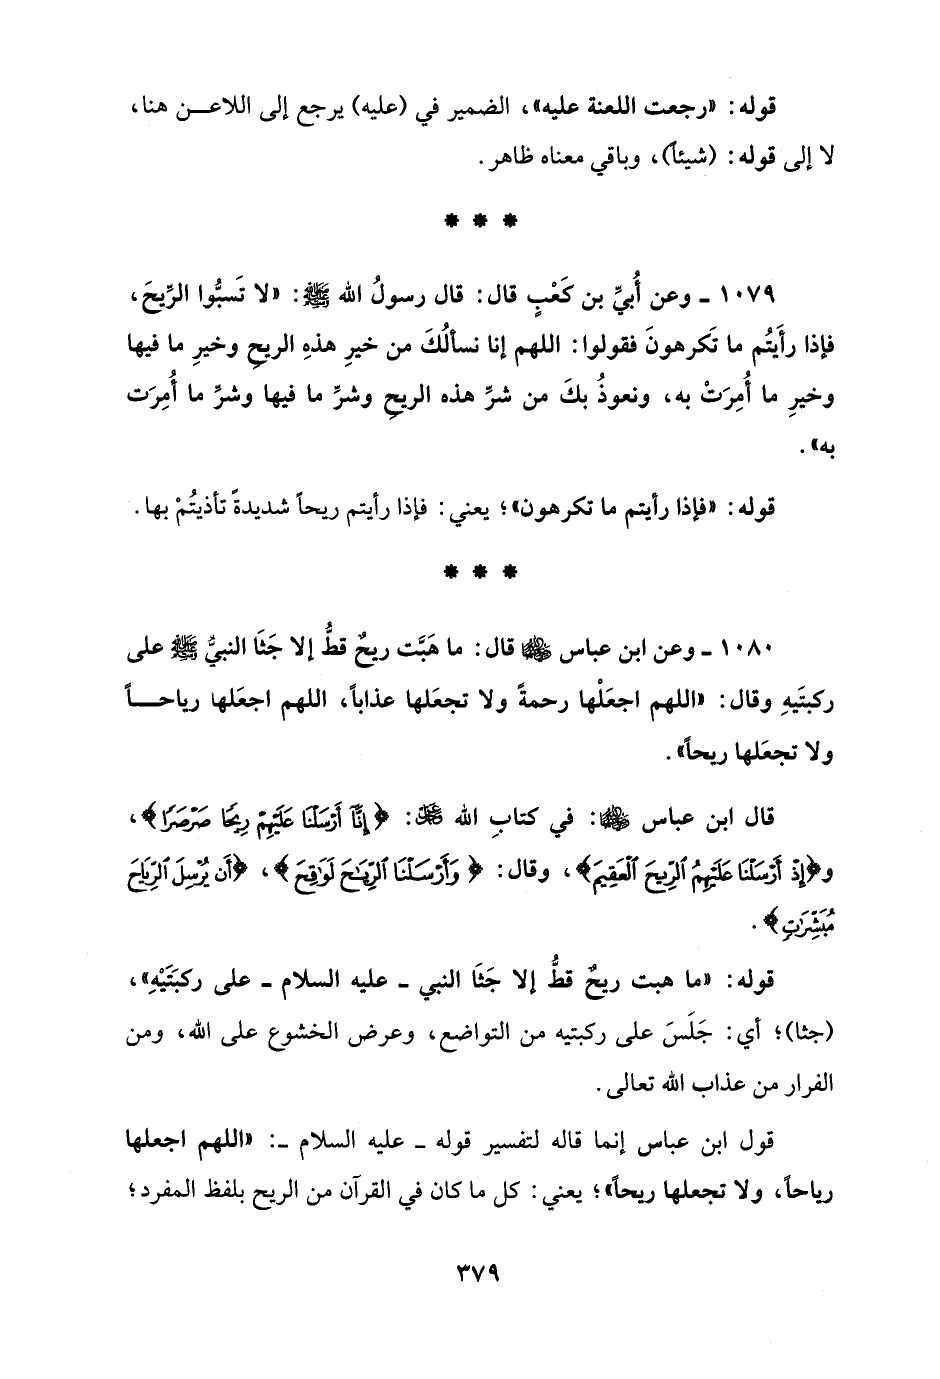 قوله: «رجعت اللعنة عليه»، الضمير في (عليه) يرجع إلى اللاعـــن هنا،
لا إلى قوله: (شيئاً)، وباقي معناه ظاهر.
* * *
١٠٧٩ ـ وعن أُبيِّ بن كَعْبٍ قال: قال رسولُ الله ﷺ: «لا تَسبُّوا الرِّيحَ،
فإذا رأَيتُم ما تَكرهونَ فقولوا: اللهم إنا نسألُكَ من خيرِ هذهِ الريحِ وخيرِ ما فيها
وخيرِ ما أُمِرَتْ به، ونعوذُ بكَ من شرِّ هذه الريحِ وشرِّ ما فيها وشرِّ ما أُمِرَت
به».
قوله: «فإذا رأيتم ما تكرهون»؛ يعني: فإذا رأيتم ريحاً شديدةً تأذيتُمْ بها.
* * *
١٠٨٠ ـ وعن ابن عباس ﷺ قال: ما هَبَّت ريحٌ قطُّ إلا جَثَا النبيُّ ﷺ على
ركبتَيهِ وقال: «اللهم اجعَلْها رحمةً ولا تجعَلها عذاباً، اللهم اجعَلها رياحـــاً
ولا تجعَلها ريحاً».
قال ابن عباس: في كتابِ الله ﷻ: ﴿إِنَّا أَرْسَلْنَا عَلَيْهِمْ رِيحًا صَرْصَرًا﴾،
و﴿إِذْ أَرْسَلْنَا عَلَيْهِمُ ٱلرِّيحَ ٱلْعَقِيمَ﴾، وقال: ﴿وَأَرْسَلْنَا ٱلرِّيَٰحَ لَوَٰقِحَ﴾، ﴿أَن يُرْسِلَ ٱلرِّيَاحَ
مُبَشِّرَٰتٍ﴾.
قوله: «ما هبت ريحٌ قطُّ إلا جَثَا النبي ـ عليه السلام ـ على ركبتَيْهِ»،
(جثا)؛ أي: جَلَسَ على ركبتيه من التواضع، وعرض الخشوع على الله، ومن
الفرار من عذاب الله تعالى.
قول ابن عباس إنما قاله لتفسير قوله ـ عليه السلام ـ: «اللهم اجعلها
رياحاً، ولا تجعلها ريحاً»؛ يعني: كل ما كان في القرآن من الريح بلفظ المفرد؛
٣٧٩